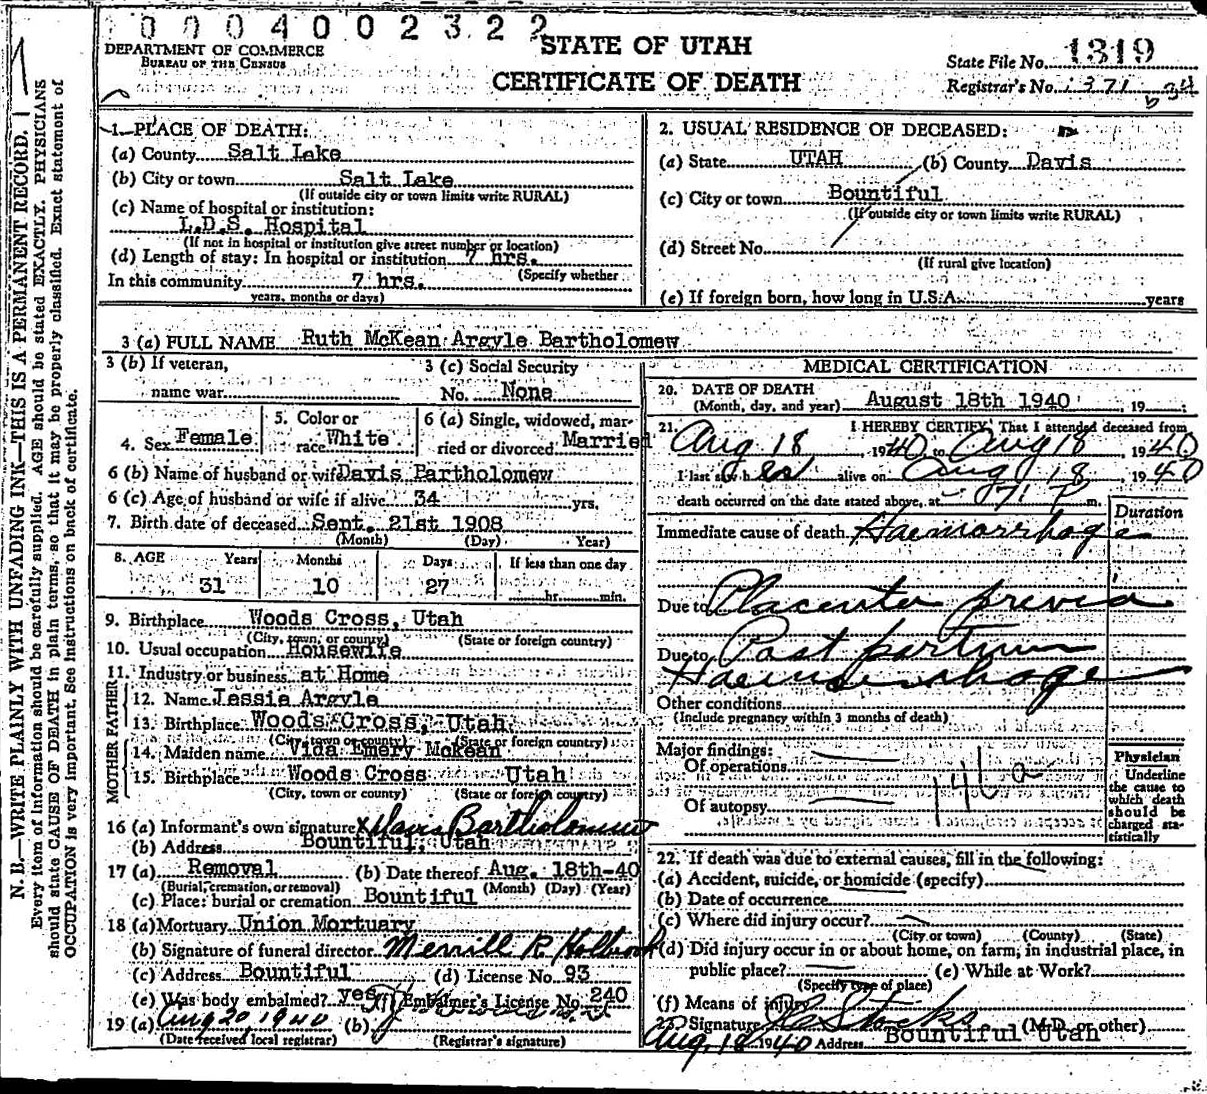 0004002322
DEPARTMENT OF COMMERCE
BUREAU OF THE CENSUS
STATE OF UTAH
CERTIFICATE OF DEATH
State File No. 1319
Registrar's No. 1371
N. B.—WRITE PLAINLY WITH UNFADING INK—THIS IS A PERMANENT RECORD.
Every item of information should be carefully supplied. AGE should be stated EXACTLY. PHYSICIANS
should state CAUSE OF DEATH in plain terms, so that it may be properly classified. Exact statement of
OCCUPATION is very important. See instructions on back of certificate.
1. PLACE OF DEATH:
(a) County Salt Lake
(b) City or town Salt Lake
(If outside city or town limits write RURAL)
(c) Name of hospital or institution:
L.D.S. Hospital
(If not in hospital or institution give street number or location)
(d) Length of stay: In hospital or institution 7 hrs.
(Specify whether
In this community 7 hrs.
years, months or days)
2. USUAL RESIDENCE OF DECEASED:
(a) State UTAH (b) County Davis
(c) City or town Bountiful
(If outside city or town limits write RURAL)
(d) Street No.
(If rural give location)
(e) If foreign born, how long in U.S.A. years
3 (a) FULL NAME Ruth McKean Argyle Bartholomew
3 (b) If veteran,
name war
3 (c) Social Security
No. None
4. Sex Female
5. Color or
race White
6 (a) Single, widowed, mar-
ried or divorced Married
6 (b) Name of husband or wife Davis Bartholomew
6 (c) Age of husband or wife if alive 34 yrs.
7. Birth date of deceased Sept. 21st 1908
(Month) (Day) Year)
8. AGE Years Months Days If less than one day
31 10 27 hr. min.
9. Birthplace Woods Cross, Utah
(City, town, or county) (State or foreign country)
10. Usual occupation Housewife
11. Industry or business at Home
FATHER
12. Name Jessie Argyle
13. Birthplace Woods Cross, Utah
(City town or county) (State or foreign country)
MOTHER
14. Maiden name Vida Emery McKean
15. Birthplace Woods Cross Utah
(City, town or county) (State or foreign country)
16 (a) Informant's own signature x Davis Bartholomew
(b) Address Bountiful, Utah
17 (a) Removal (b) Date thereof Aug. 18th-40
(Burial, cremation, or removal) (Month) (Day) (Year)
(c) Place: burial or cremation Bountiful
18 (a) Mortuary Union Mortuary
(b) Signature of funeral director Merrill R. Holbrook
(c) Address Bountiful (d) License No. 93
(e) Was body embalmed? yes (f) Embalmer's License No. 240
19 (a) Aug 20, 1940 (b)
(Date received local registrar) (Registrar's signature)
MEDICAL CERTIFICATION
20. DATE OF DEATH
(Month, day, and year) August 18th 1940, 19
21. I HEREBY CERTIFY, That I attended deceased from
Aug 18, 1940 to Aug 18, 1940
I last saw her alive on Aug 18, 1940
death occurred on the date stated above, at 7 P m.
Duration
Immediate cause of death Haemorrhage
Due to Placenta previa
Due to Post partum
Haemorrhage
Other conditions
(Include pregnancy within 3 months of death)
Major findings:
Of operations
Of autopsy
146a
Physician
Underline
the cause to
which death
should be
charged sta-
tistically
22. If death was due to external causes, fill in the following:
(a) Accident, suicide, or homicide (specify)
(b) Date of occurrence
(c) Where did injury occur?
(City or town) (County) (State)
(d) Did injury occur in or about home, on farm, in industrial place, in
public place? (e) While at Work?
(Specify type of place)
(f) Means of injury
23. Signature Stocks (M.D. or other)
Aug. 18 1940 Address Bountiful Utah